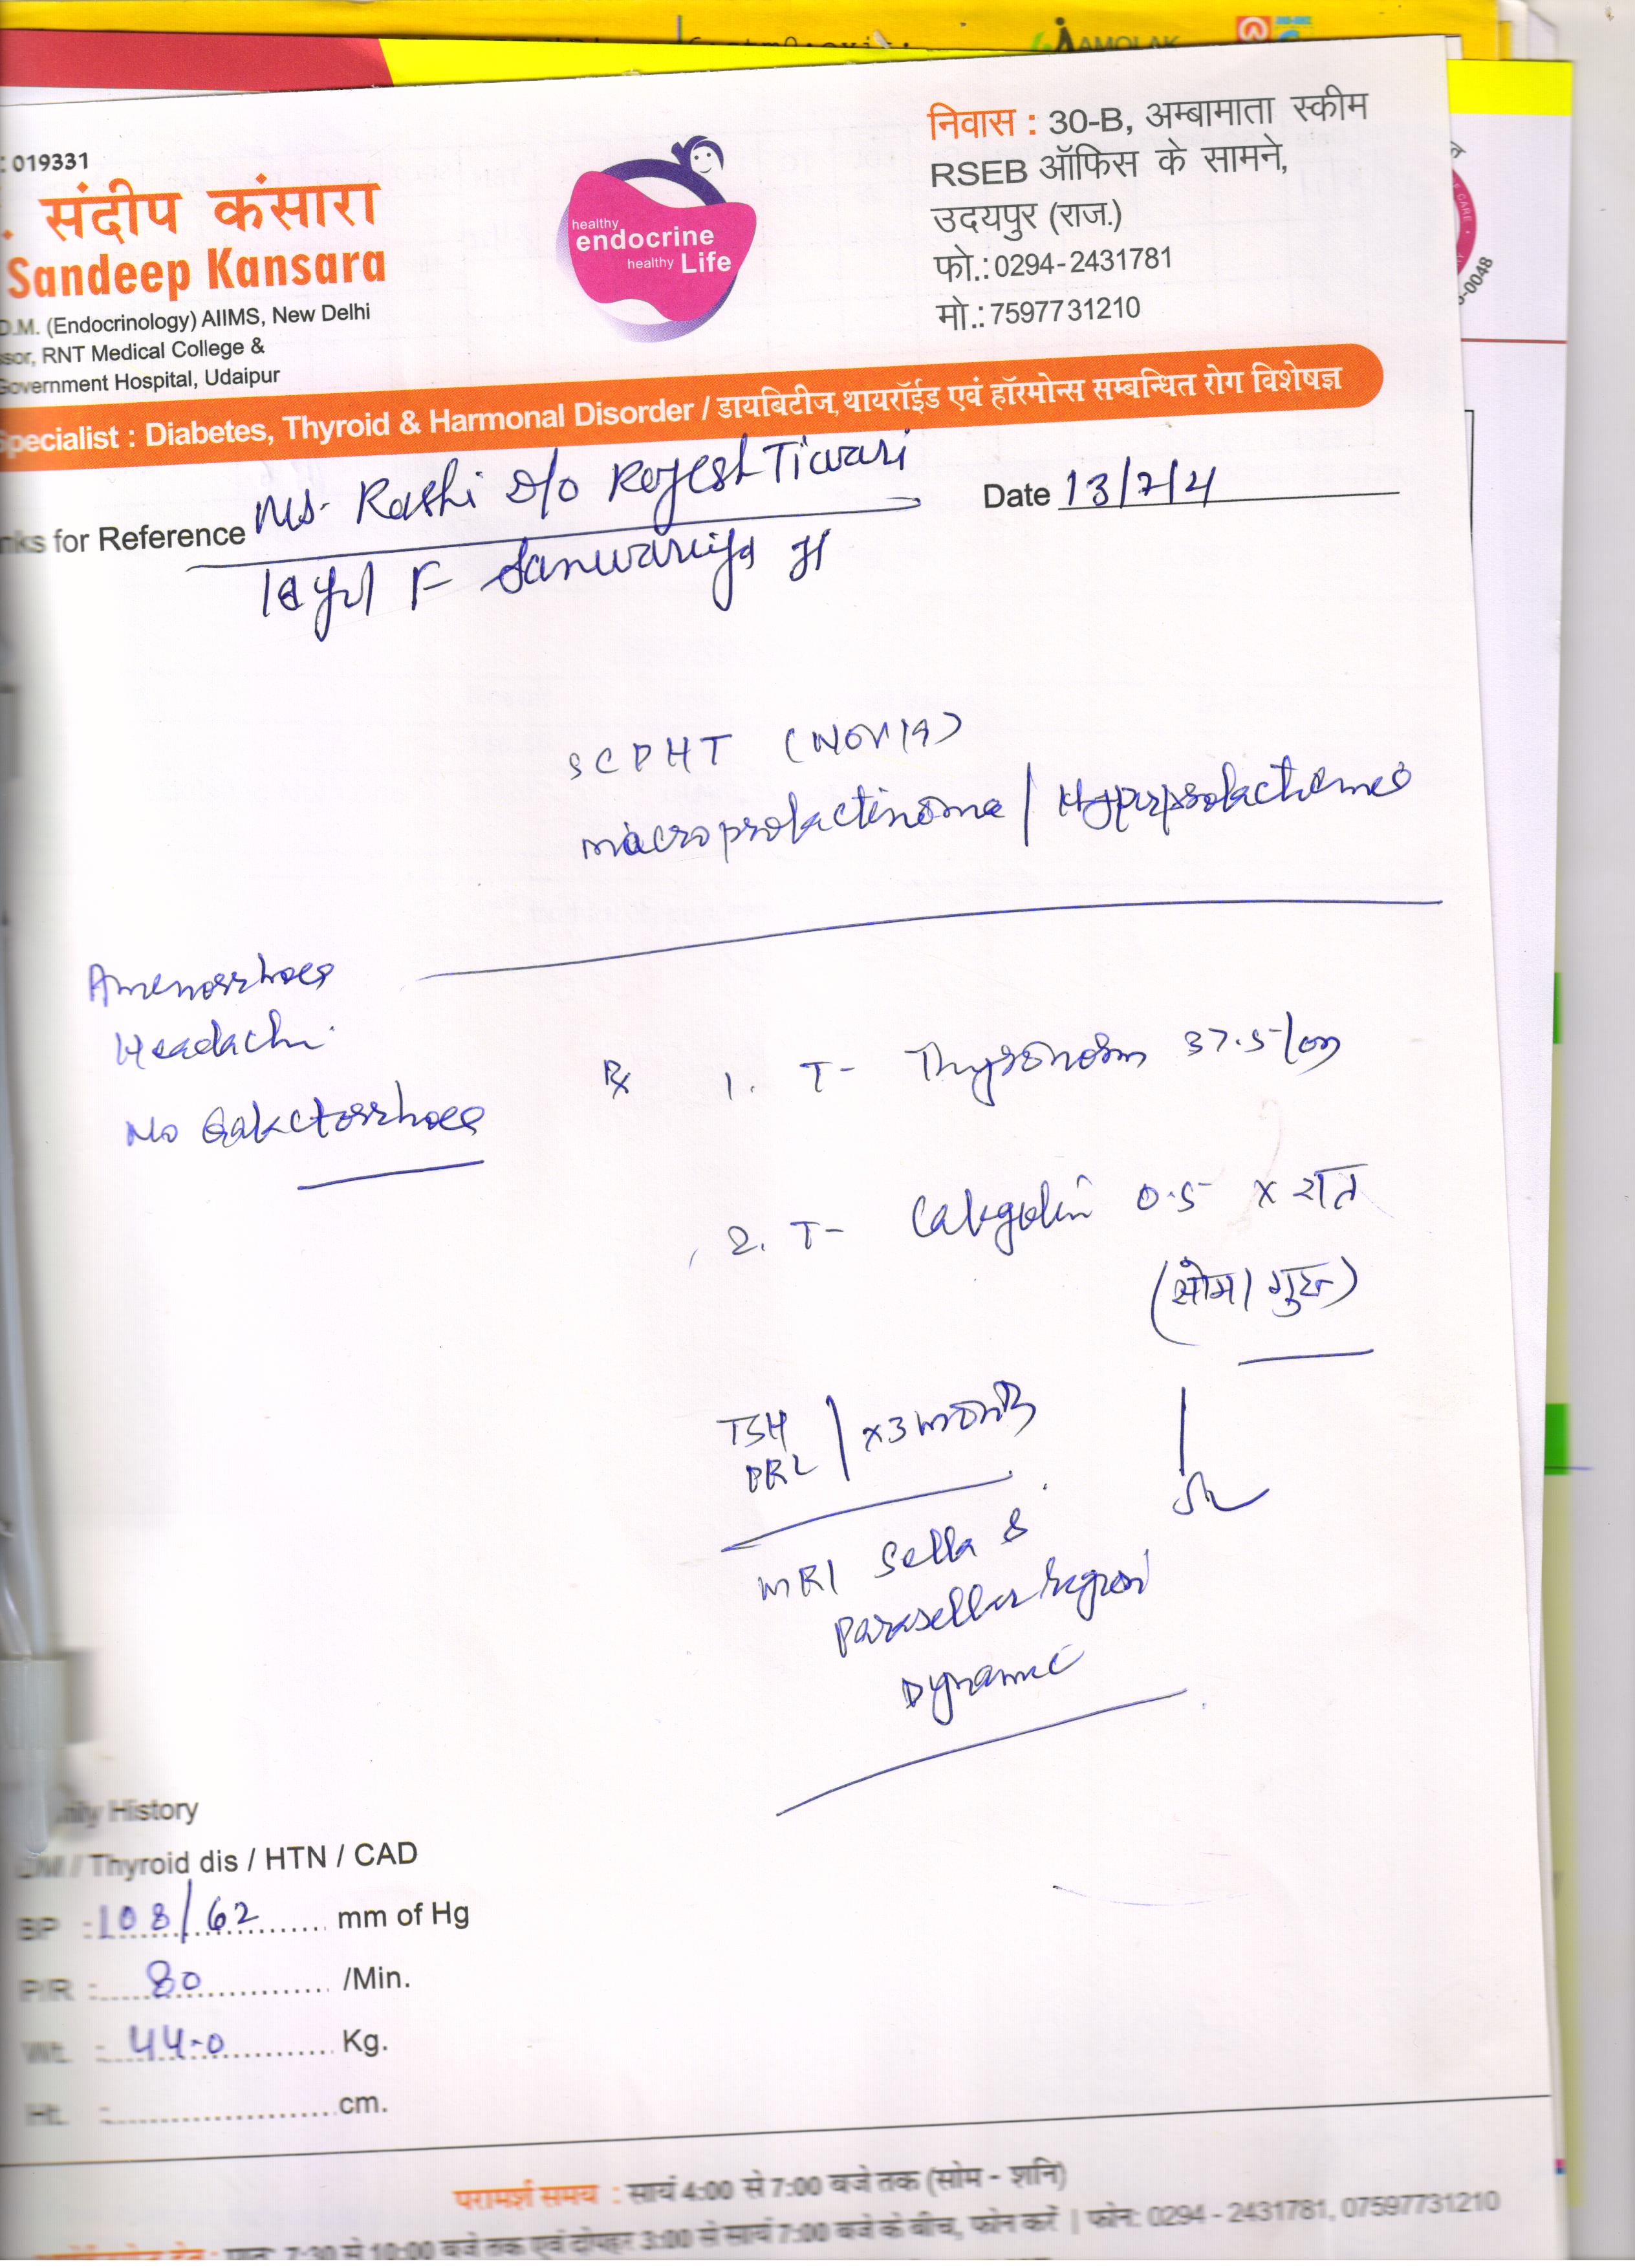 AMOLAK
: 019331
. संदीप कंसारा
Sandeep Kansara
D.M. (Endocrinology) AIIMS, New Delhi
ssor, RNT Medical College &
Government Hospital, Udaipur
healthy
endocrine
healthy Life
निवास : 30-B, अम्बामाता स्कीम
RSEB ऑफिस के सामने,
उदयपुर (राज.)
फो.: 0294-2431781
मो.: 7597731210
CARE
-0048
Specialist : Diabetes, Thyroid & Harmonal Disorder / डायबिटीज, थायरॉईड एवं हॉरमोन्स सम्बन्धित रोग विशेषज्ञ
nks for Reference Ms. Rashi D/o Rajesh Tiwari
Date 13/7/4
F Sanwariya
SCPHT (Nov 19)
macroprolactinoma / Hyperprolactinemia
Amenorrhoea
Headache
No Galactorrhoea
Rx 1. T- Thyronorm 37.5 / OD
2. T- Cabgolin 0.5 x रात
(सोम / गुरु)
TSH
PRL / x3 month
MRI Sella &
Parasellar region
Dynamic
ily History
DM / Thyroid dis / HTN / CAD
BP : 108/62 mm of Hg
P/R : 80 /Min.
Wt. : 44.0 Kg.
Ht. : cm.
परामर्श समय : सायं 4:00 से 7:00 बजे तक (सोम - शनि)
7:30 से 10:00 बजे तक एवं दोपहर 3:00 से सायं 7:00 बजे के बीच, फोन करें | फोन: 0294 - 2431781, 07597731210